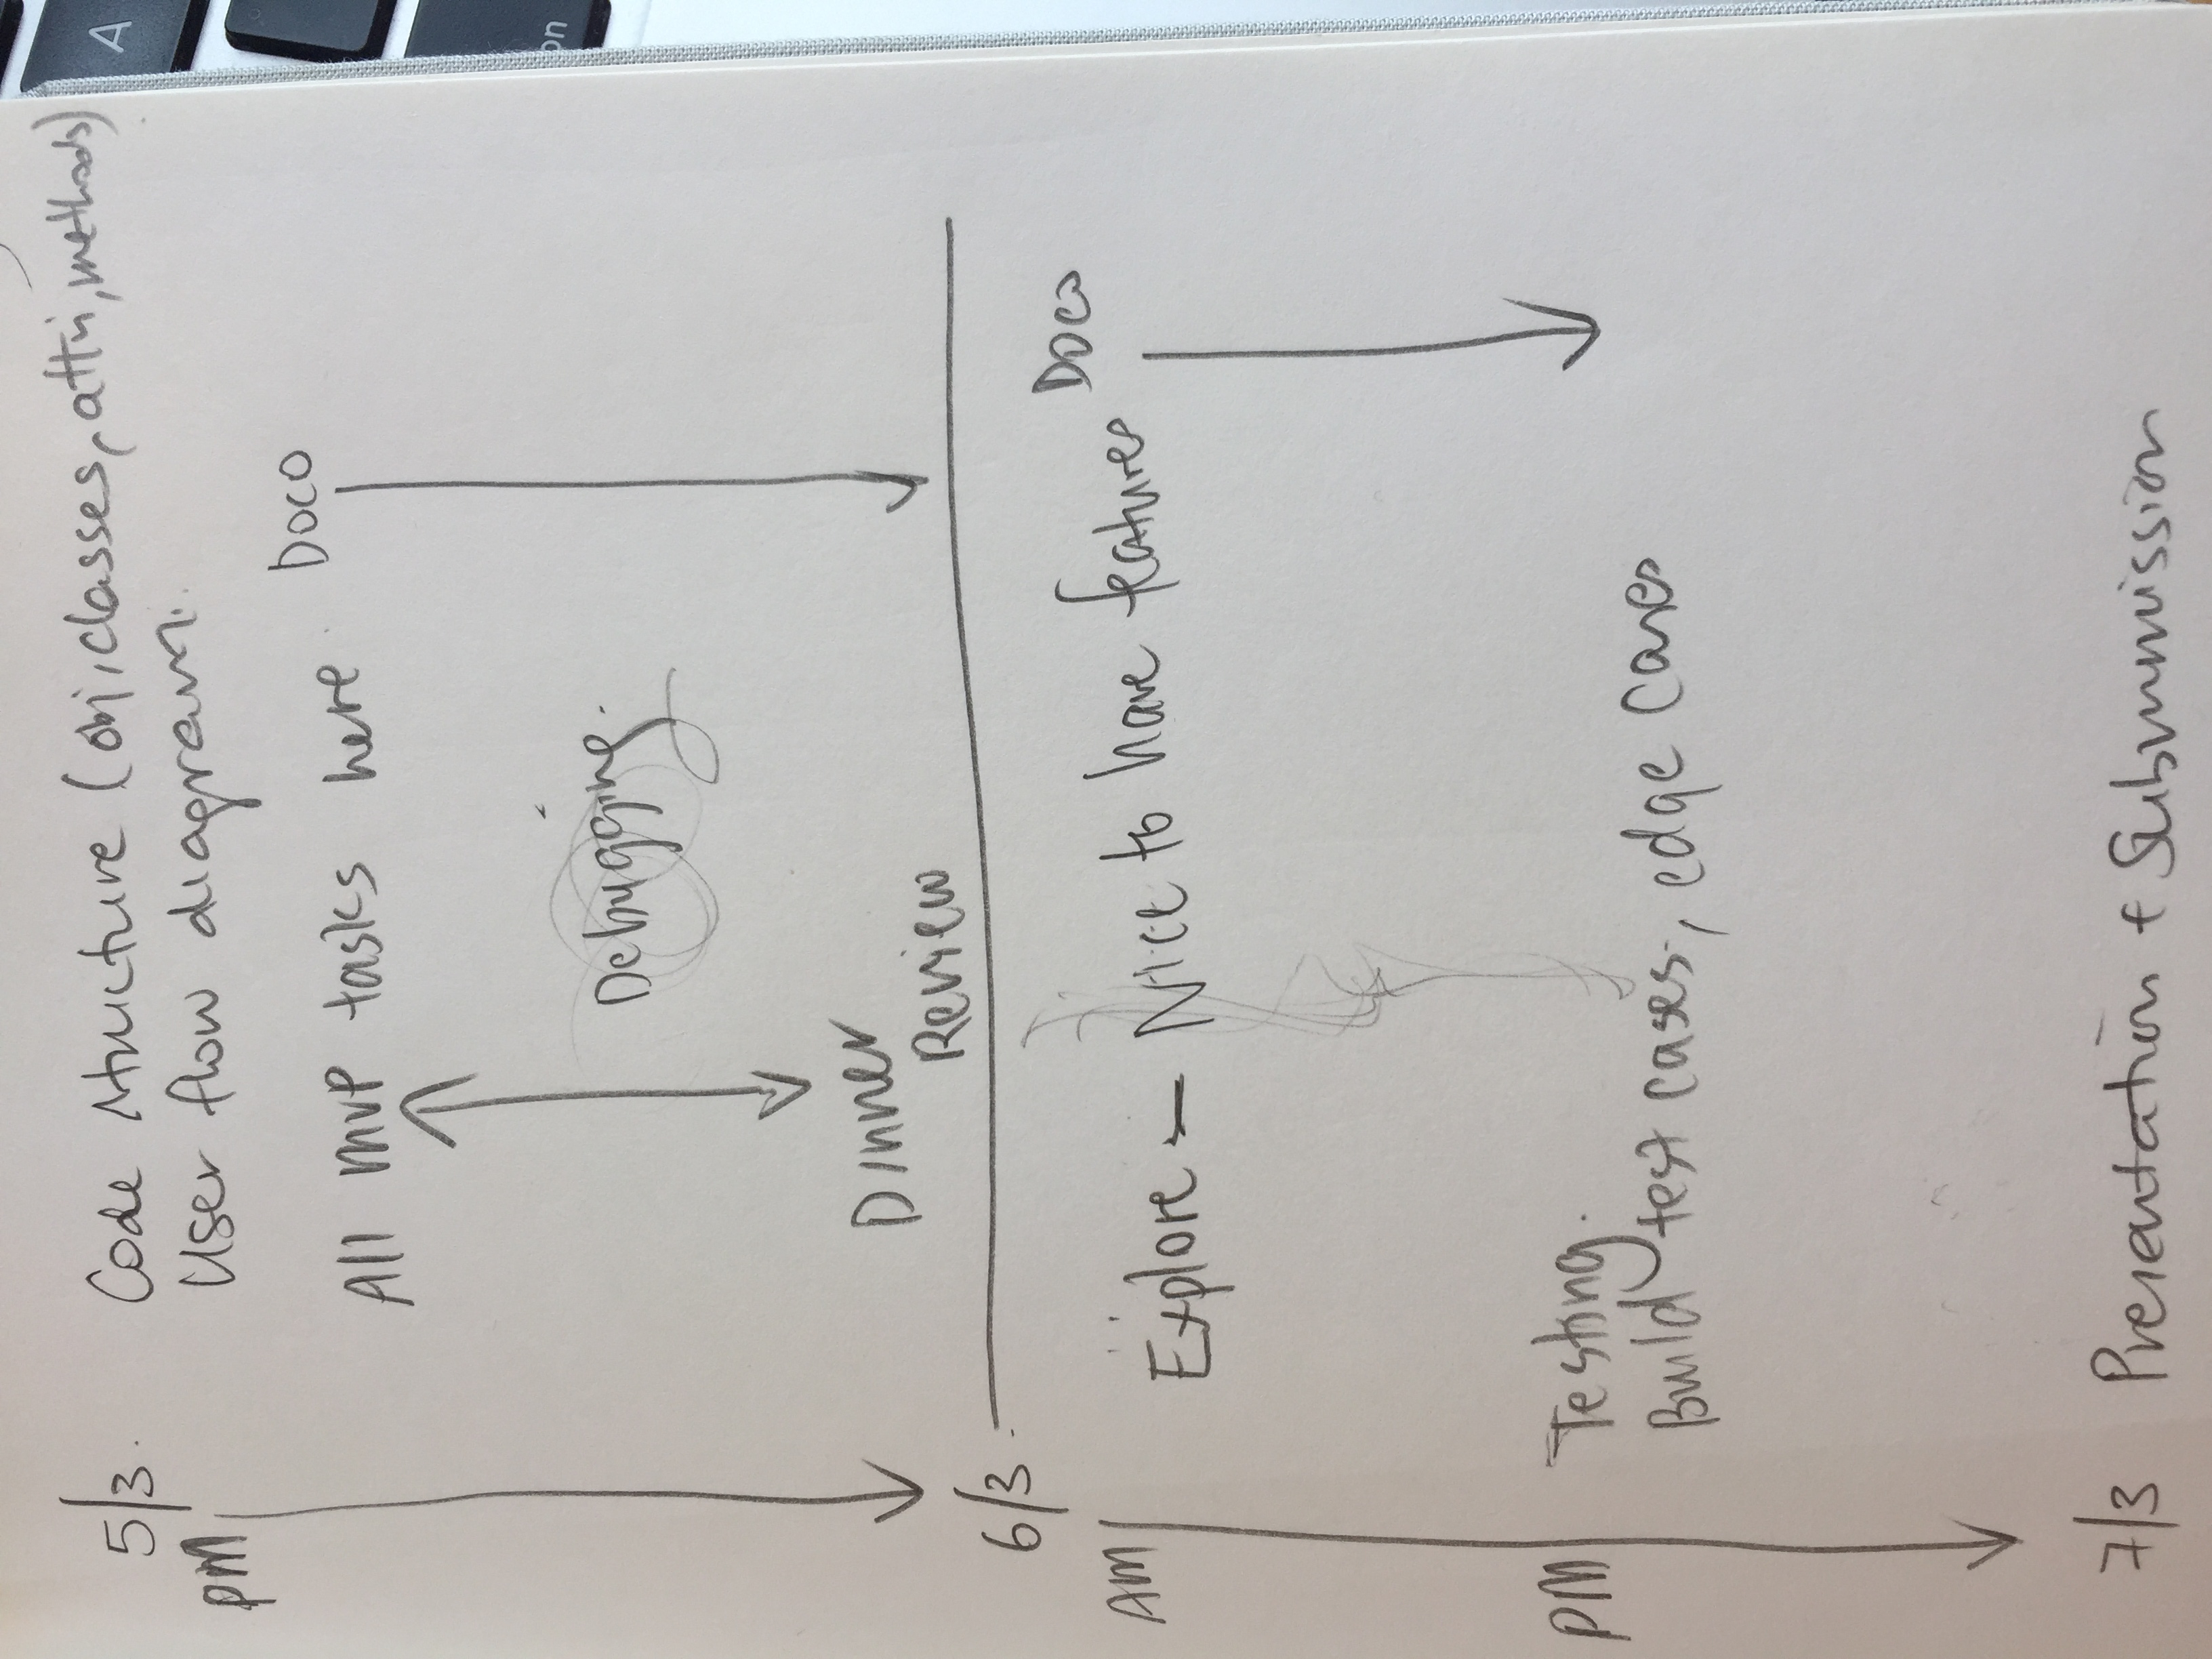 5/3. Code structure (obj, classes, attri, methods)
PM User flow diagram.
All MVP tasks here. Doco
Debugging.
Dinner
Review
6/3.
AM Explore – Nice to have features Doco
PM Testing.
Build test cases, edge cases
7/3 Presentation + Submmission
A
on